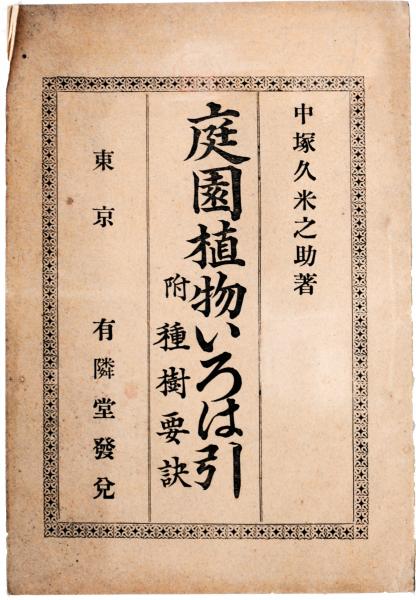 中塚久米之助著
庭園植物いろは引
附種樹要訣
東京 有隣堂發兌